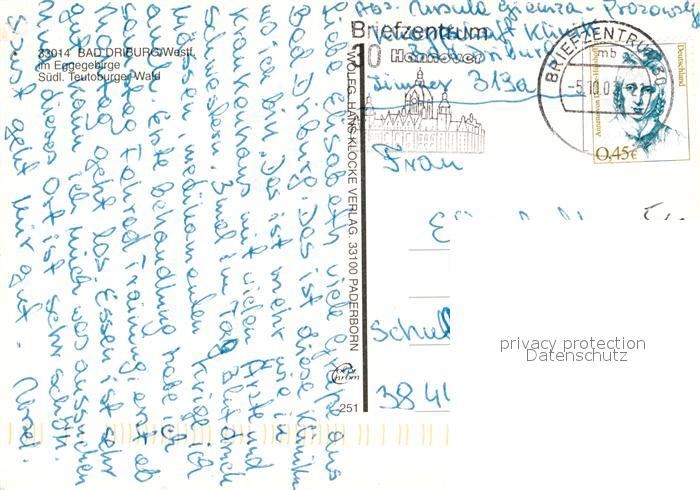 33014 BAD DRIBURG/Westf.
im Eggegebirge
Südl. Teutoburger Wald
Lieb Elisabeth viele Grüße aus
Bad Driburg. Das ist diese Klinik
wo ich bin. Das ist mehr wie in
Krankenhaus mit vielen Ärzte und
Schwestern. 3mal in Tag Blutdruck
messen, medikamenten kriege ich
alle erste behandlung habe ich
Fahrrad Training erst ab
Montag geht los. Essen ist sehr
gut kann ich mich was aussuchen
und dieses Ort ist sehr schön.
Sonst geht mir gut. Ursel.
WOLFG.-HANS KLOCKE VERLAG, 33100 PADERBORN
251
Abs. Ursula
Klinik
Bad Driburg
Zimmer 313a
Briefzentrum
30 Hannover
BRIEFZENTRUM 30
mb
-5.10.03
Deutschland
Annette von Droste-Hülshoff
0,45€
Frau
Schul
384
privacy protection
Datenschutz